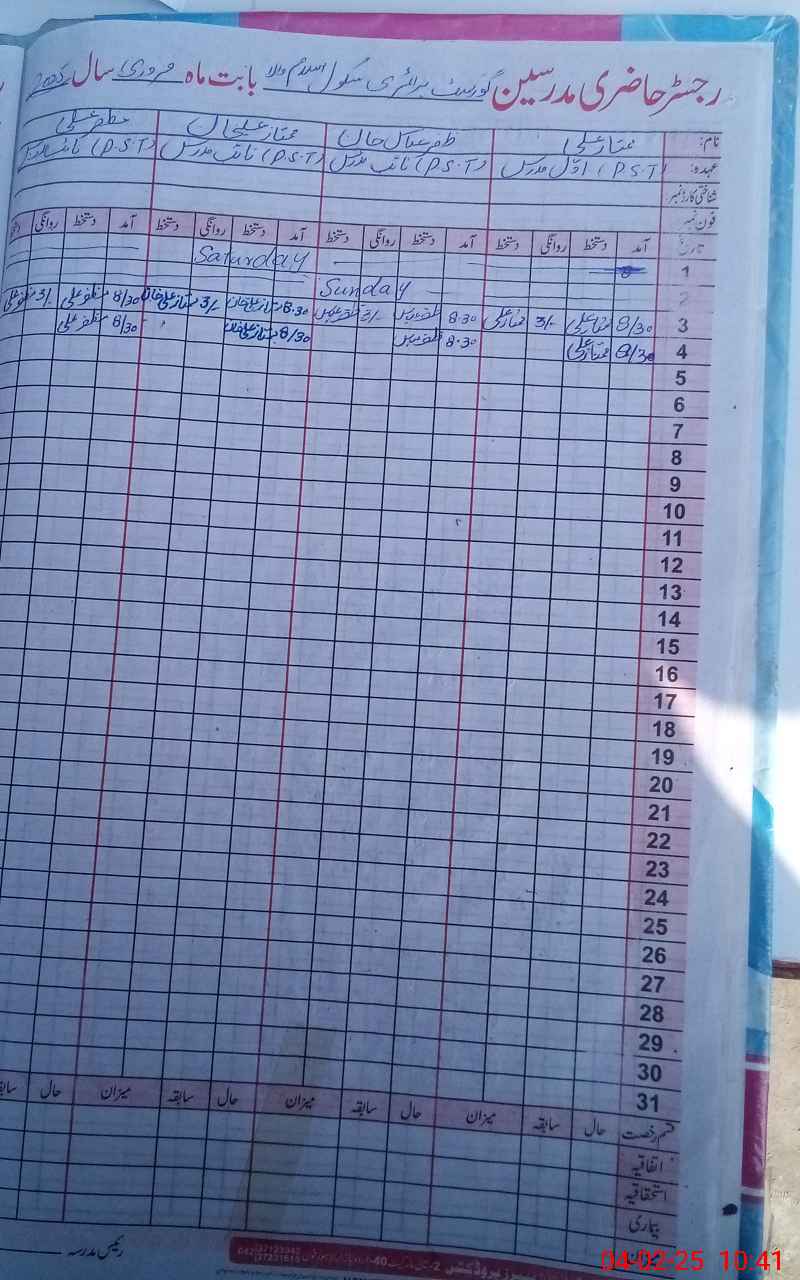 رجسٹر حاضری مدرسین گورنمنٹ پرائمری سکول اسلام والا بابت ماہ فروری سال 2025
نام: ممتاز علی ظفر عباس خان ممتاز علی خان مظفر علی
عہدہ: (P.S.T) اوّل مدرس (P.S.T) نائب مدرس (P.S.T) نائب مدرس (P.S.T)
شناختی کارڈ نمبر
فون نمبر
تاریخ آمد دستخط روانگی دستخط آمد دستخط روانگی دستخط آمد دستخط روانگی دستخط آمد دستخط روانگی
1 Saturday
2 Sunday
3 8/30 ممتاز علی 3/- ممتاز علی 8.30 ظفر عباس 3/- ظفر عباس 8.30 ممتاز علی خان 3/- ممتاز علی خان 8/30 مظفر علی 3/- مظفر علی
4 8/30 ممتاز علی 8.30 ظفر عباس 8/30 ممتاز علی خان 8/30 مظفر علی
5
6
7
8
9
10
11
12
13
14
15
16
17
18
19
20
21
22
23
24
25
26
27
28
29
30
31
قسم رخصت حال سابقہ میزان حال سابقہ میزان حال سابقہ میزان حال
اتفاقیہ
استحقاقیہ
بیماری
رئیس مدرسہ
04-02-25 10:41